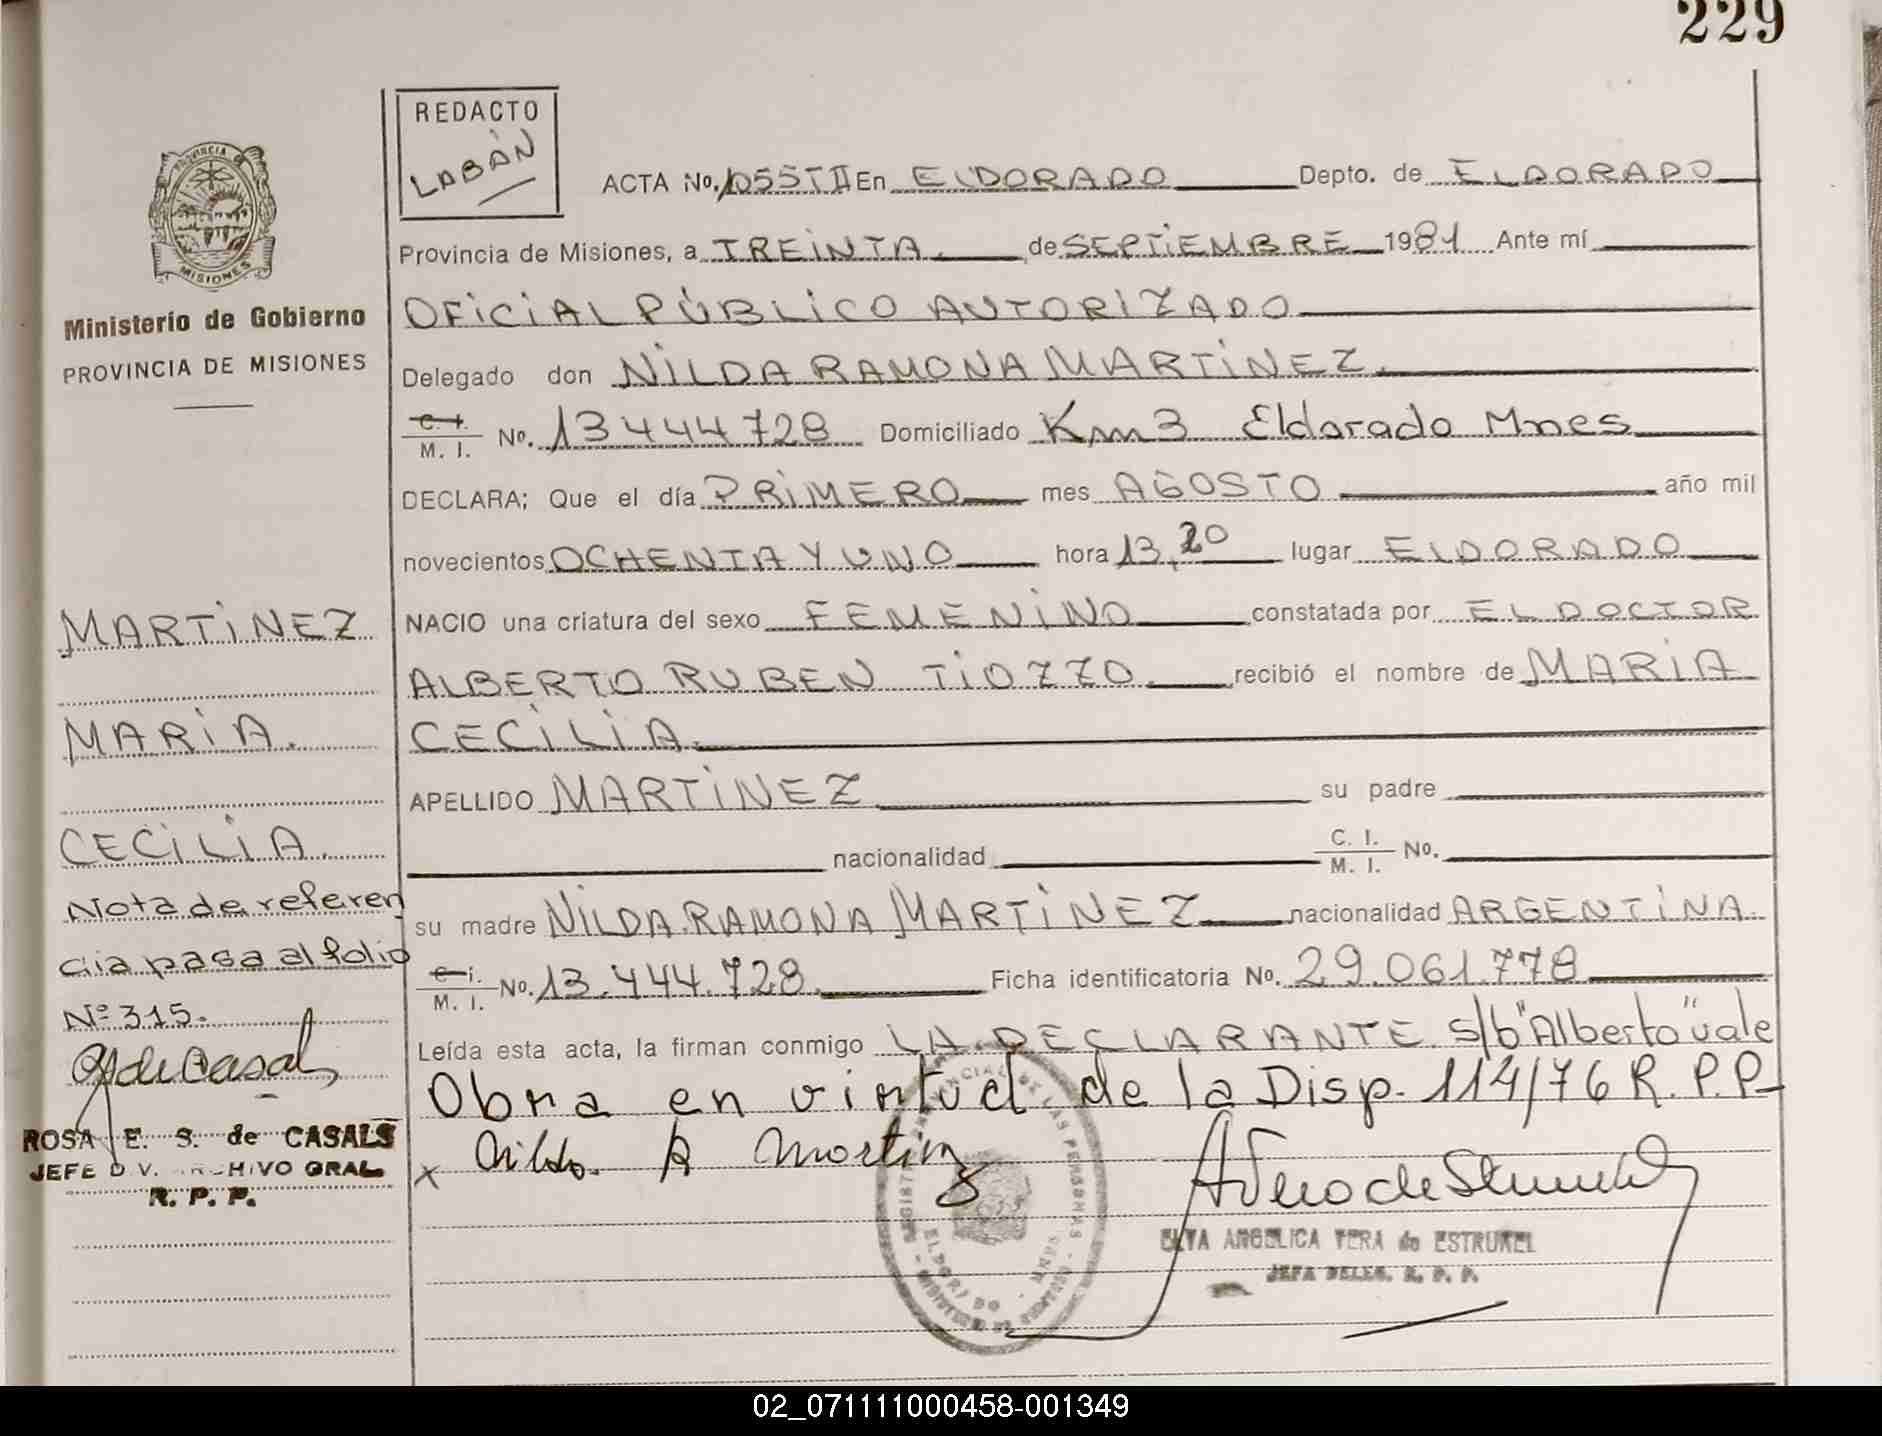 229
REDACTO
LABÁN
ACTA No. 1055TII En ELDORADO Depto. de ELDORADO
Provincia de Misiones, a TREINTA. de SEPTIEMBRE 1981 Ante mí
OFICIAL PÚBLICO AUTORIZADO
Delegado don NILDA RAMONA MARTINEZ.
C. I.
M. I. No. 13444728 Domiciliado Km3 Eldorado Mnes
DECLARA; Que el día PRIMERO mes AGOSTO año mil
novecientos OCHENTA Y UNO hora 13,20 lugar ELDORADO
NACIO una criatura del sexo FEMENINO constatada por EL DOCTOR
ALBERTO RUBEN TIOZZO. recibió el nombre de MARIA
CECILIA.
APELLIDO MARTINEZ su padre
nacionalidad C. I.
M. I. No.
su madre NILDA RAMONA MARTINEZ nacionalidad ARGENTINA.
C. I.
M. I. No. 13.444.728. Ficha identificatoria No. 29.061.778
Leída esta acta, la firman conmigo LA DECLARANTE. s/b "Alberto" vale
Obra en virtud de la Disp. 114/76 R.P.P-
x Nilda. R Martinez
ELVA ANGELICA VERA de ESTRUMEL
JEFA DELEG. R. P. P.
PROVINCIA DE
MISIONES
Ministerio de Gobierno
PROVINCIA DE MISIONES
MARTINEZ
MARIA.
CECILIA.
Nota de referen
cia pasa al folio
Nº 315.
RdeCasals
ROSA E. S. de CASALS
JEFE DIV. ARCHIVO GRAL
R. P. P.
02_071111000458-001349